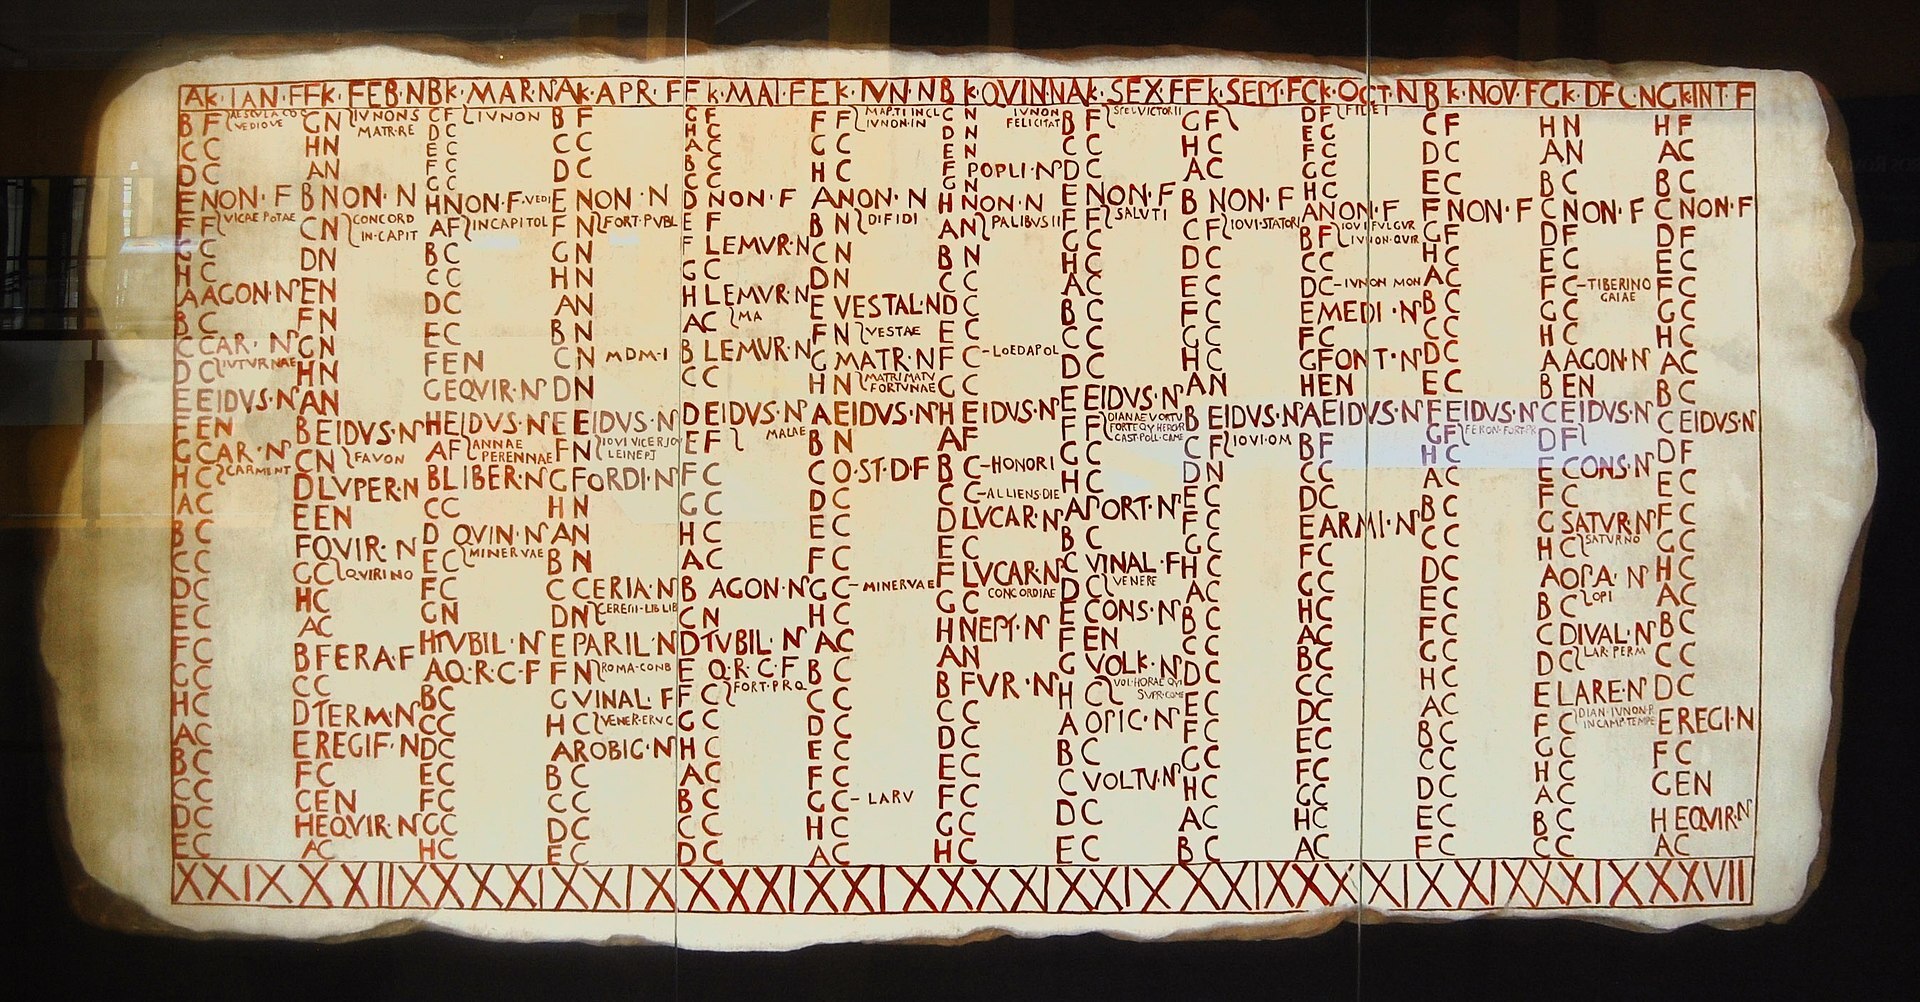 AK·IAN·F FK·FEB·N BK·MAR·N AK·APR·F FK·MAI·F EK·IVN·N BK·QVIN·N AK·SEX·F FK·SEPT·F CK·OCT·N BK·NOV·F GK·DEC·N GK·INT·F
B F AESCVLA CO
VEDIOVE
C C
D C
E NON·F
F F VICAE POTAE
G C
H C
A AGON·N
B C
C CAR·N
D C IVTVRNAE
E EIDVS·N
F EN
G CAR·N
H C CARMENT
A C
B C
C C
D C
E C
F C
G C
H C
A C
B C
C C
D C
E C
G N IVNONS
MATR·RE
H N
A N
B NON·N
C N CONCORD
IN·CAPIT
D N
E N
F N
G N
H N
A N
B EIDVS·N
C N FAVON
D LVPER·N
E EN
F QVIR·N
G C QVIRINO
H C
A C
B FERA·F
C C
D TERM·N
E REGIF·N
F C
G EN
H EQVIR·N
A C
C F IVNON
D C
E C
F C
G C
H NON·F·VEDI
A F IN CAPITOL
B C
C C
D C
E C
F EN
G EQVIR·N
H EIDVS·N
A F ANNAE
PERENNAE
B LIBER·N
C C
D QVIN·N
E C MINERVAE
F C
G N
H TVBIL·N
A Q·R·C·F
B C
C C
D C
E C
F C
G C
H C
B F
C C
D C
E NON·N
F N FORT·PVBL
G N
H N
A N
B N
C N MDM·I
D N
E EIDVS·N
F N IOVI VICER IOV
LEINEPI
G FORDI·N
H N
A N
B N
C CERIA·N
D N CERERI·LIB LIB
E PARIL·N
F N ROMA·CONB
G VINAL·F
H C VENER·ERVC
A ROBIG·N
B C
C C
D C
E C
G F
H C
A C
B C
C C
D NON·F
E F
F LEMVR·N
G C
H LEMVR·N
A C MA
B LEMVR·N
C C
D EIDVS·N
E F MAIAE
F C
G C
H C
A C
B AGON·N
C N
D TVBIL·N
E Q·R·C·F
F C FORT·PRQ
G C
H C
A C
B C
C C
D C
F F MAR·TI IN CL
IVNON·IN
G C
H C
A NON·N
B N DI FIDI
C N
D N
E VESTAL·N
F N VESTAE
G MATR·N
H N MATRI MATV
FORTVNAE
A EIDVS·N
B N
C Q·ST·D·F
D C
E C
F C
G C MINERVAE
H C
A C
B C
C C
D C
E C
F C
G C LARV
H C
A C
C N IVNON
FELICITAT
D N
E N
F POPLI·N
G N
H NON·N
A N PALIBVS II
B N
D C
E C
F C LOEDAPOL
G C
H EIDVS·N
A F
B C HONORI
C C ALLIENS·DIE
D LVCAR·N
E C
F LVCAR·N
G C CONCORDIAE
H NEPT·N
A N
B FVR·N
C C
D C
E C
F C
G C
H C
B F SPEI VICTOR II
C C
D C
E NON·F
F F SALVTI
G C
H C
A C
B C
C C
D C
E EIDVS·N
F F DIANAE VORTV
FORTE QV HERCR
CAST·POLL·CAME
G C
H C
A PORT·N
B C
C VINAL·F
D C VENERE
E CONS·N
F EN
G VOLK·N
H C VOL·HORAE QVI
SVPR·COME
A OPIC·N
B C
C VOLTV·N
D C
E C
G F
H C
A C
B NON·F
C F IOVI·STATORI
D C
E C
F C
G C
H C
A N
B EIDVS·N
C F IOVI·OM
D N
E C
F C
G C
H C
A C
B C
C C
D C
E C
F C
G C
H C
A C
B C
D F FIDEI
E C
F C
G C
H C
A NON·F
B F IOVI FVLGVR
IVNON·QVIR
C C
D C IVNON MON
E MEDI·N
F C
G FONT·N
H EN
A EIDVS·N
B F
C C
D C
E ARMI·N
F C
G C
H C
A C
B C
C C
D C
E C
F C
G C
H C
A C
C F
D C
E C
F NON·F
G F
H C
A C
B C
C C
D C
E C
F EIDVS·N
G F FERON·FORT·PR
H C
A C
B C
C C
D C
E C
F C
G C
H C
A C
B C
C C
D C
E C
F C
H N
A N
B C
C NON·F
D F
E C
F C TIBERINO
GAIAE
G C
H C
A AGON·N
B EN
C EIDVS·N
D F
E CONS·N
F C
G SATVR·N
H C SATVRNO
A OPA·N
B C OPI
C DIVAL·N
D C LAR·PERM
E LARE·N
F C DIAN·IVNON·R
IN CAMP·TEMPE
G C
H C
A C
B C
C C
H F
A C
B C
C NON·F
D F
E C
F C
G C
H C
A C
B C
C EIDVS·N
D F
E C
F C
G C
H C
A C
B C
C C
D C
E REGI·N
F C
G EN
H EQVIR·N
A C
XXIX XXIIX XXXI XXIX XXXI XXIX XXXI XXIX XXIX XXXI XXIX XXIX XXVII